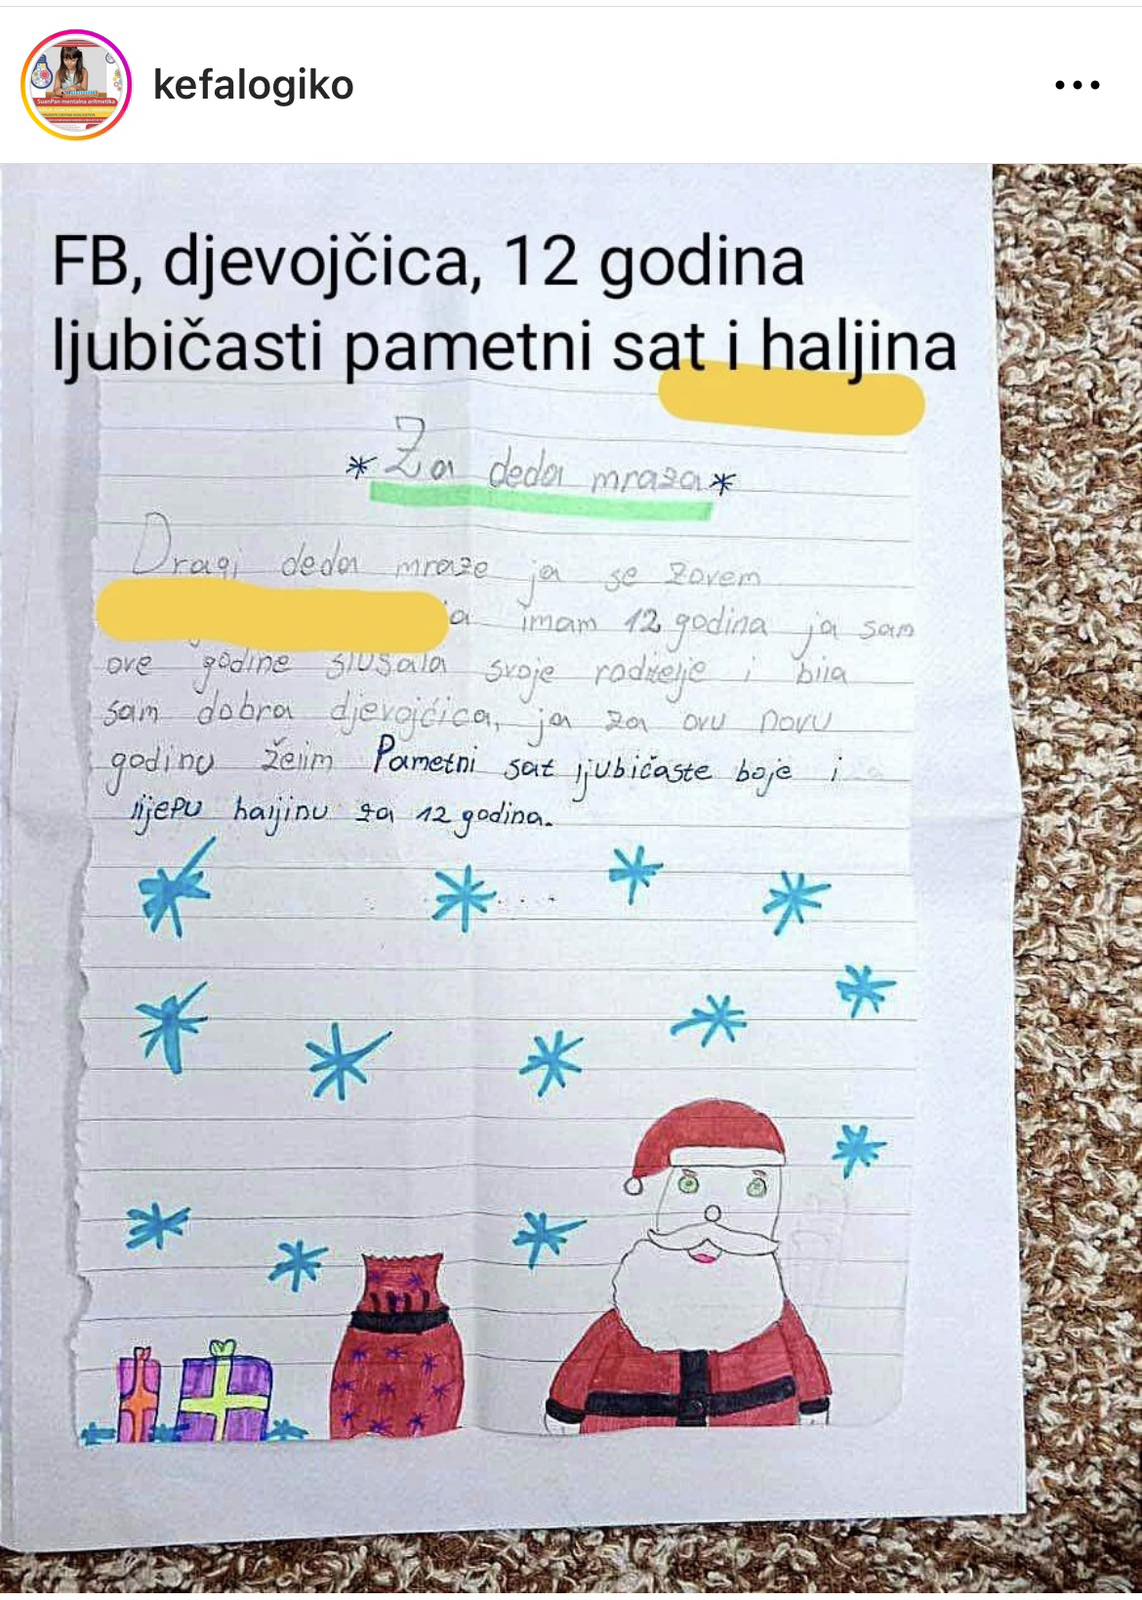 kefalogiko
SuanPan mentalna aritmetika
FB, djevojčica, 12 godina
ljubičasti pametni sat i haljina
*Za deda mraza*
Dragi deda mraze ja se zovem
ja imam 12 godina ja sam
ove godine slušala svoje roditelje i bila
sam dobra djevojčica, ja za ovu novu
godinu želim Pametni sat ljubičaste boje i
lijepu haljinu za 12 godina.